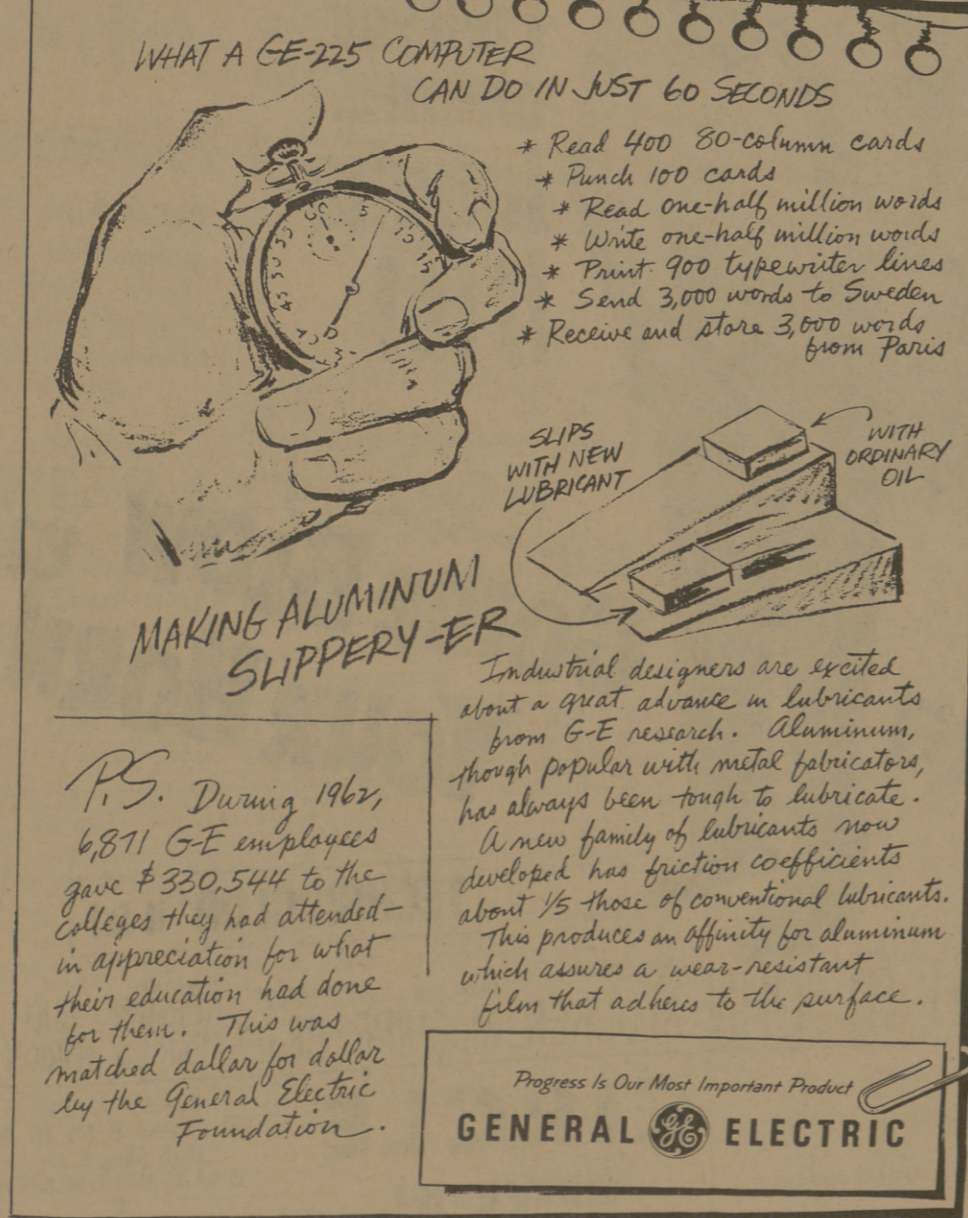 WHAT A GE-225 COMPUTER
CAN DO IN JUST 60 SECONDS
* Read 400 80-column cards
* Punch 100 cards
* Read one-half million words
* Write one-half million words
* Print 900 typewriter lines
* Send 3,000 words to Sweden
* Receive and store 3,000 words
from Paris
SLIPS
WITH NEW
LUBRICANT
WITH
ORDINARY
OIL
MAKING ALUMINUM
SLIPPERY-ER
Industrial designers are excited
about a great advance in lubricants
from G-E research. Aluminum,
though popular with metal fabricators,
has always been tough to lubricate.
A new family of lubricants now
developed has friction coefficients
about 1/5 those of conventional lubricants.
This produces an affinity for aluminum
which assures a wear-resistant
film that adheres to the surface.
P.S. During 1962,
6,871 G-E employees
gave $330,544 to the
colleges they had attended—
in appreciation for what
their education had done
for them. This was
matched dollar for dollar
by the General Electric
Foundation.
Progress Is Our Most Important Product
GENERAL GE ELECTRIC